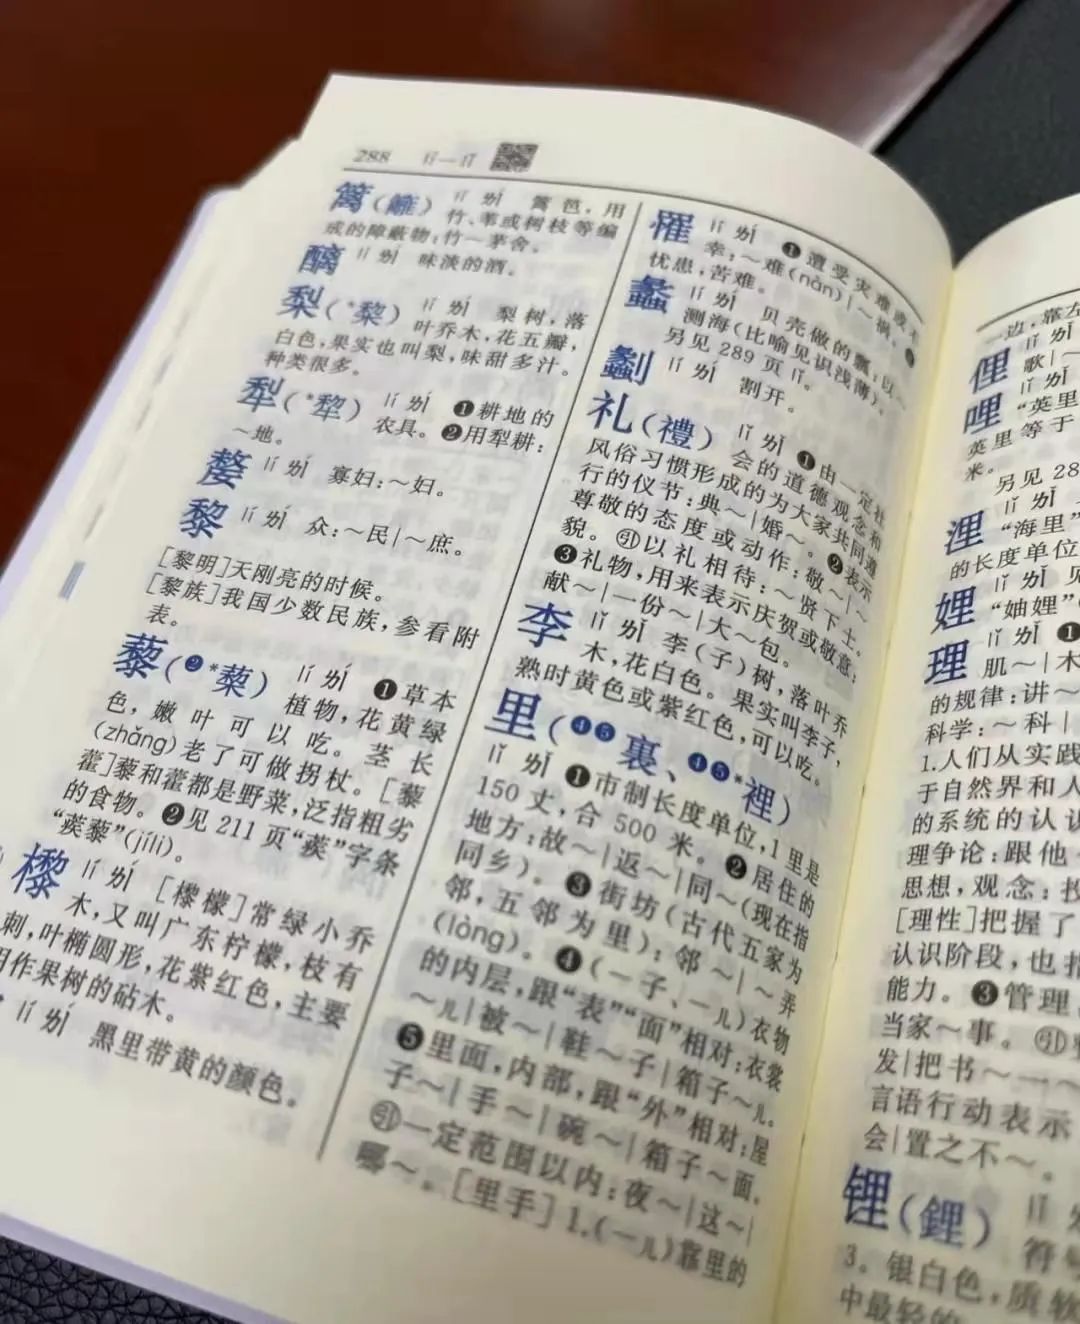 288 lí—lǐ
篱(籬) lí ㄌㄧˊ 篱笆，用
竹、苇或树枝等编
成的障蔽物：竹～茅舍。
醨 lí ㄌㄧˊ 味淡的酒。
梨(*棃) lí ㄌㄧˊ 梨树，落
叶乔木，花五瓣，
白色，果实也叫梨，味甜多汁。
种类很多。
犁(*犂) lí ㄌㄧˊ ❶耕地的
农具。❷用犁耕：
～地。
嫠 lí ㄌㄧˊ 寡妇：～妇。
黎 lí ㄌㄧˊ 众：～民|～庶。
[黎明]天刚亮的时候。
[黎族]我国少数民族，参看附
表。
藜(❷*蔾) lí ㄌㄧˊ ❶草本
植物，花黄绿
色，嫩叶可以吃。茎长
(zhǎng)老了可做拐杖。[藜
藿]藜和藿都是野菜，泛指粗劣
的食物。❷见 211 页“蒺”字条
“蒺藜”(jílí)。
檬 lí ㄌㄧˊ [檬檬]常绿小乔
木，又叫广东柠檬，枝有
刺，叶椭圆形，花紫红色，主要
用作果树的砧木。
lí ㄌㄧˊ 黑里带黄的颜色。
罹 lí ㄌㄧˊ ❶遭受灾难或不
幸：～难(nàn)|～祸。❷
忧患，苦难。
蠡 lí ㄌㄧˊ 贝壳做的瓢：以～
测海(比喻见识浅薄)。
另见 289 页 lǐ。
劙 lí ㄌㄧˊ 割开。
礼(禮) lǐ ㄌㄧˇ ❶由一定社
会的道德观念和
风俗习惯形成的为大家共同遵
行的仪节：典～|婚～。❷表示
尊敬的态度或动作：敬～|～
貌。㊁以礼相待：～贤下士。
❸礼物，用来表示庆贺或敬意：
献～|一份～|大～包。
李 lǐ ㄌㄧˇ 李(子)树，落叶乔
木，花白色。果实叫李子，
熟时黄色或紫红色，可以吃。
里(❹❺裏、❹❺*裡)
lǐ ㄌㄧˇ ❶市制长度单位，1里是
150 丈，合 500 米。❷居住的
地方：故～|返～|同～(现在指
同乡)。❸街坊(古代五家为
邻，五邻为里)：邻～|～弄
(lòng)。❹(一子、一儿)衣物
的内层，跟“表”“面”相对：衣裳
～儿|被～|鞋～子|箱子～儿。
❺里面，内部，跟“外”相对：屋
子～|手～|碗～|箱子～面。
㊁一定范围以内：夜～|这～|
哪～。[里手] 1.(一儿)靠里的
一边，靠左
俚 lǐ ㄌㄧˇ
歌|～
哩 lǐ ㄌㄧˇ
“英里
英里等于
米。
另见 28
浬 lǐ ㄌㄧˇ
“海里”
的长度单位
娌 lǐ ㄌㄧˇ 见
“妯娌”
理 lǐ ㄌㄧˇ ❶
肌～|木
的规律：讲～
科学：～科|
1.人们从实践
于自然界和人
的系统的认识
理争论：跟他
思想，观念：投
[理性]把握了
认识阶段，也指
能力。❸管理
当家～事。㊁整
发|把书～一～
言语行动表示
会|置之不～。
锂(鋰) lǐ ㄌㄧˇ
符号
3。银白色，质软
中最轻的